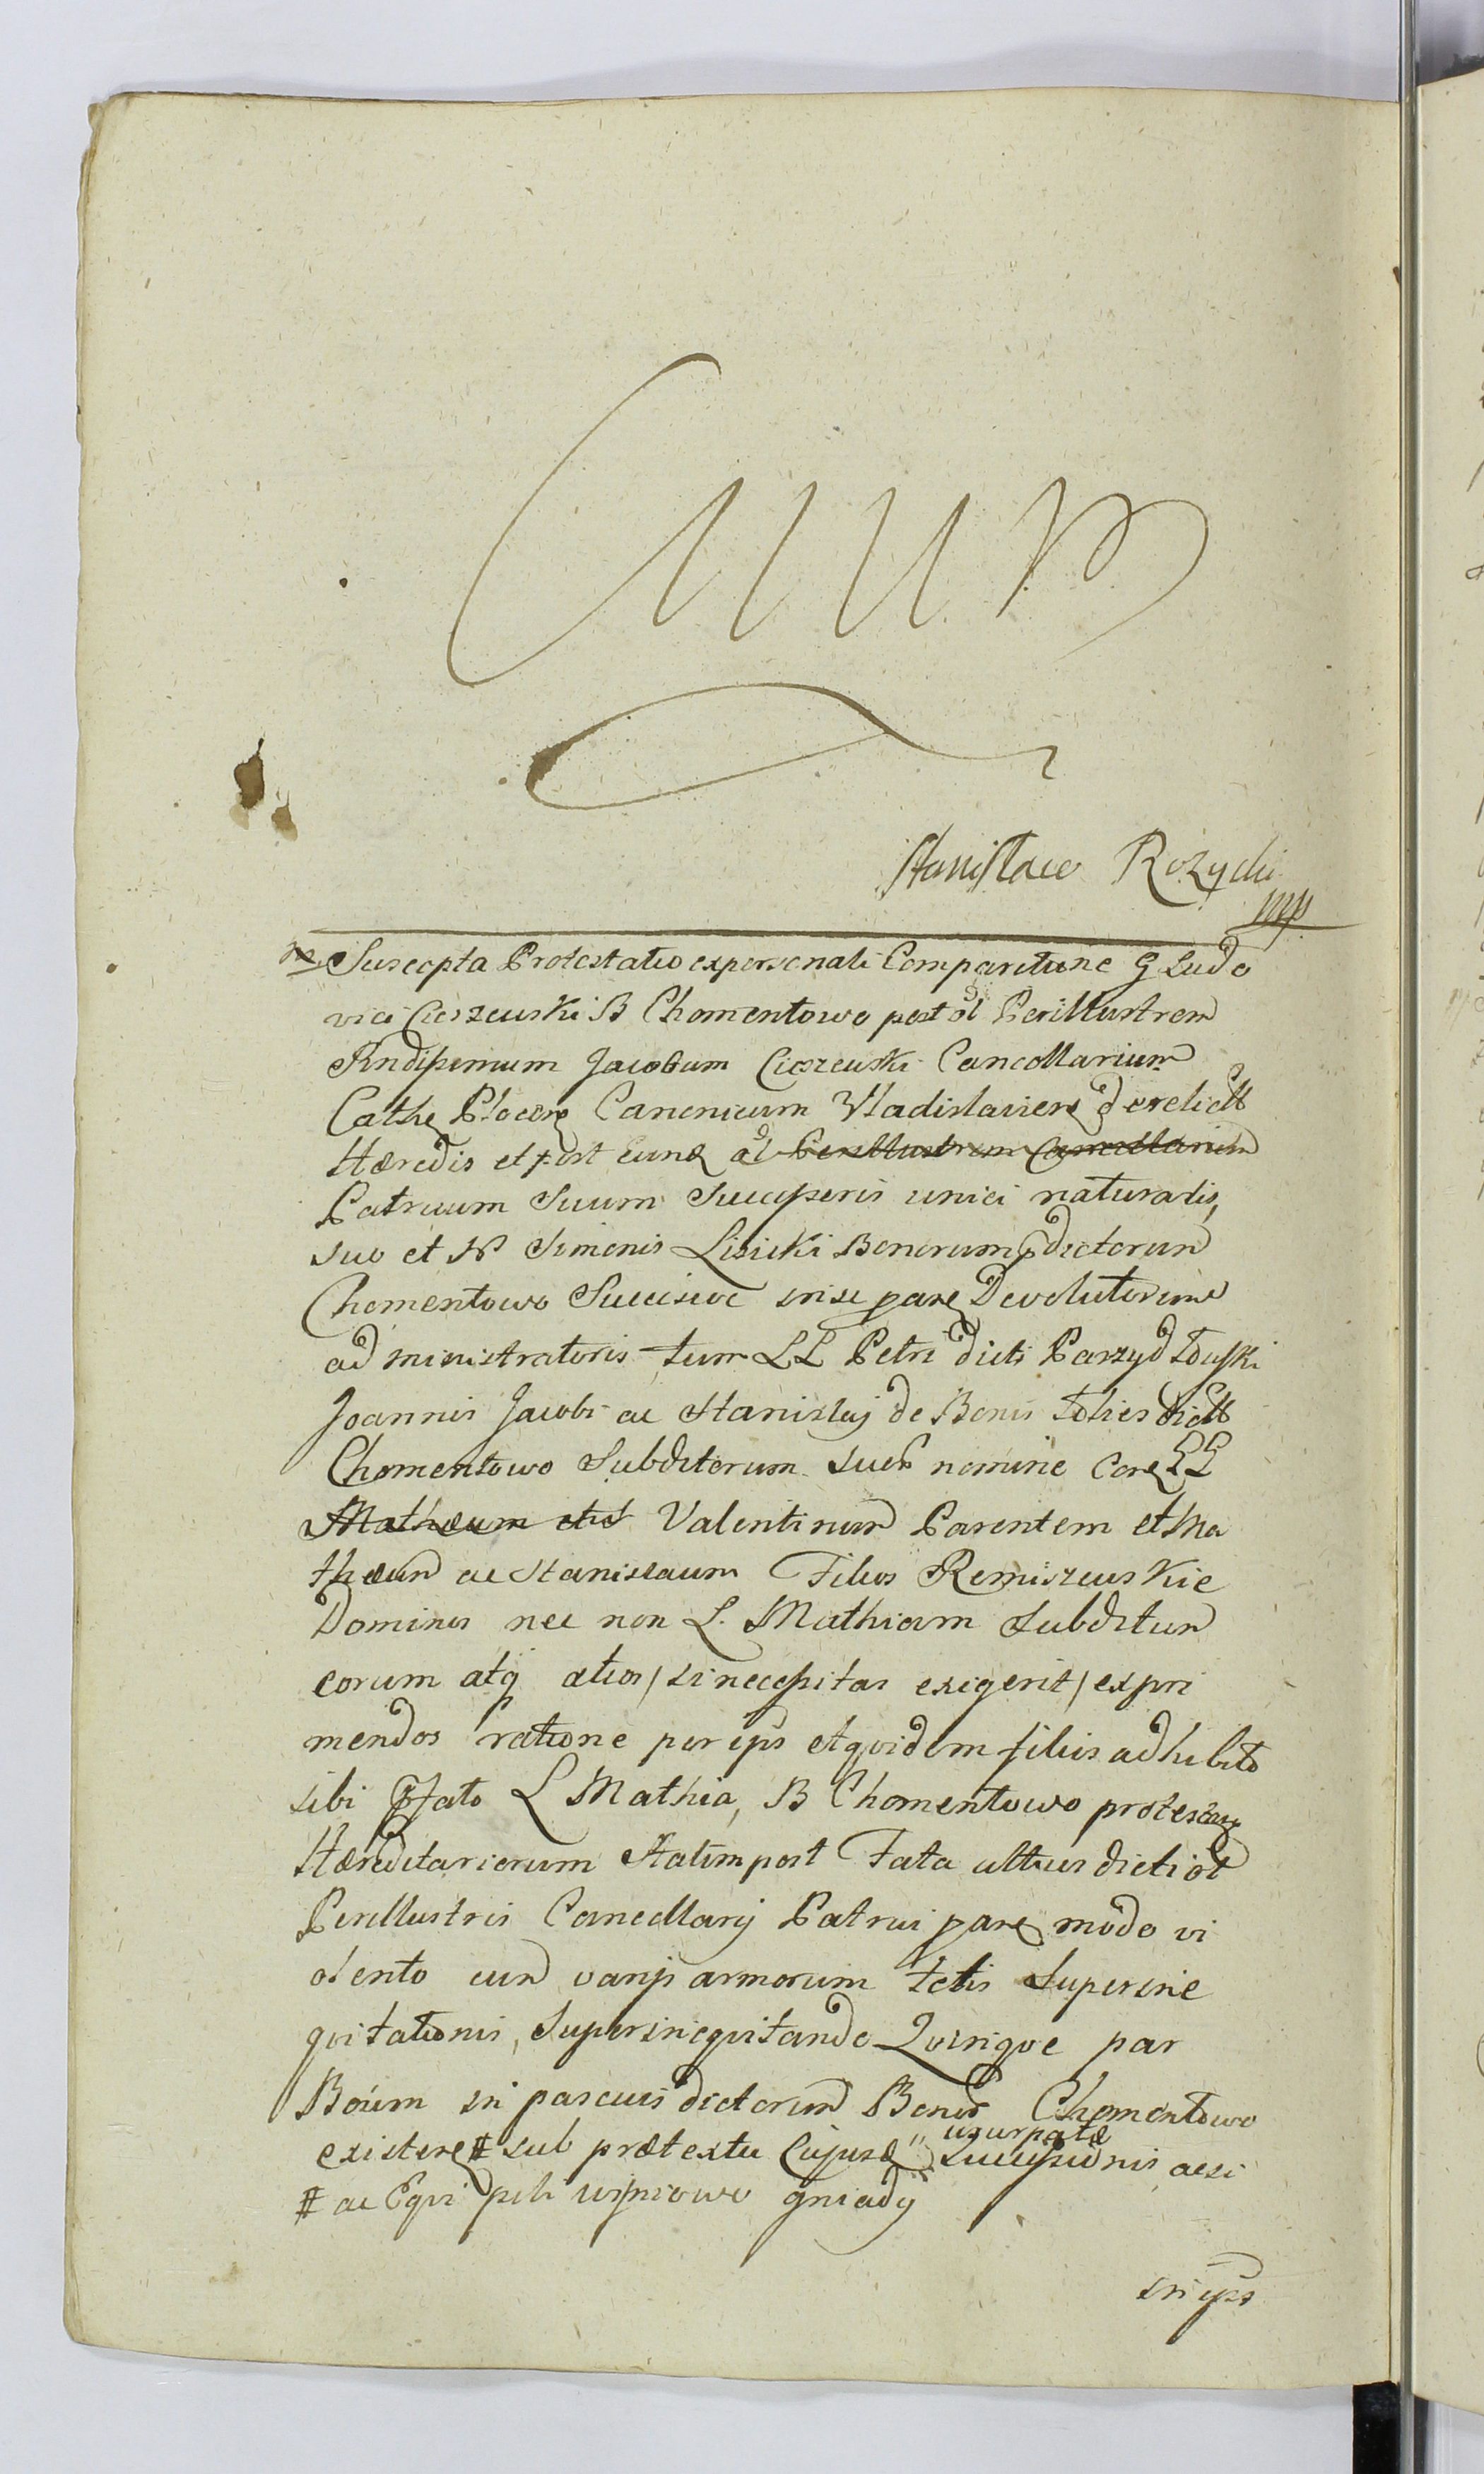 Stanisław Rozycki
mp
Suscepta Protestatio ex personali Comparitione G Ludo
vici Cieszewski B Chomentowo post ol Perillustrem
Rndissimum Jacobum Cieszewski Cancellarium
Cathe Plocen Canonicum Vladislavien derelict
Hæredis et post eund ol Perillustrem Cancellarium
Patruum Suum Successoris unici naturalis,
suo et N Simonis Lisicki Bonorum pdictorum
Chomentowo Successive in se pare Devolutorum
administratoris tum LL Petri dicti Parzydłouski
Joannis Jacobi ac Stanislaj de Bonis toties dict
Chomentowo Subditorum suor nomine Cora LL
Mathæum et Valentinum Parentem et Ma
thæum ac Stanislaum Filios Remiszewskie
Dominos nec non L. Mathiam Subditum
eorum atq alios / si necessitas exigerit / expri
mendos ratione per ips et quidem filiis adhibito
sibi pfato L Mathia, B Chomentowo protestan
Hæreditariorum Statim post Fata altius dicti ol
Perillustris Cancellarij Patrui pare modo vi
olento cum varijs armorum telis Superine
quitationis, Superinequitando Quinque par
Boum in pascuis dictorum Bonor Chomentowo
existen # sub prætextu Cujusd usurpatæ Successionis acsi
# ac Equi pili wisniowo gniady
in ips